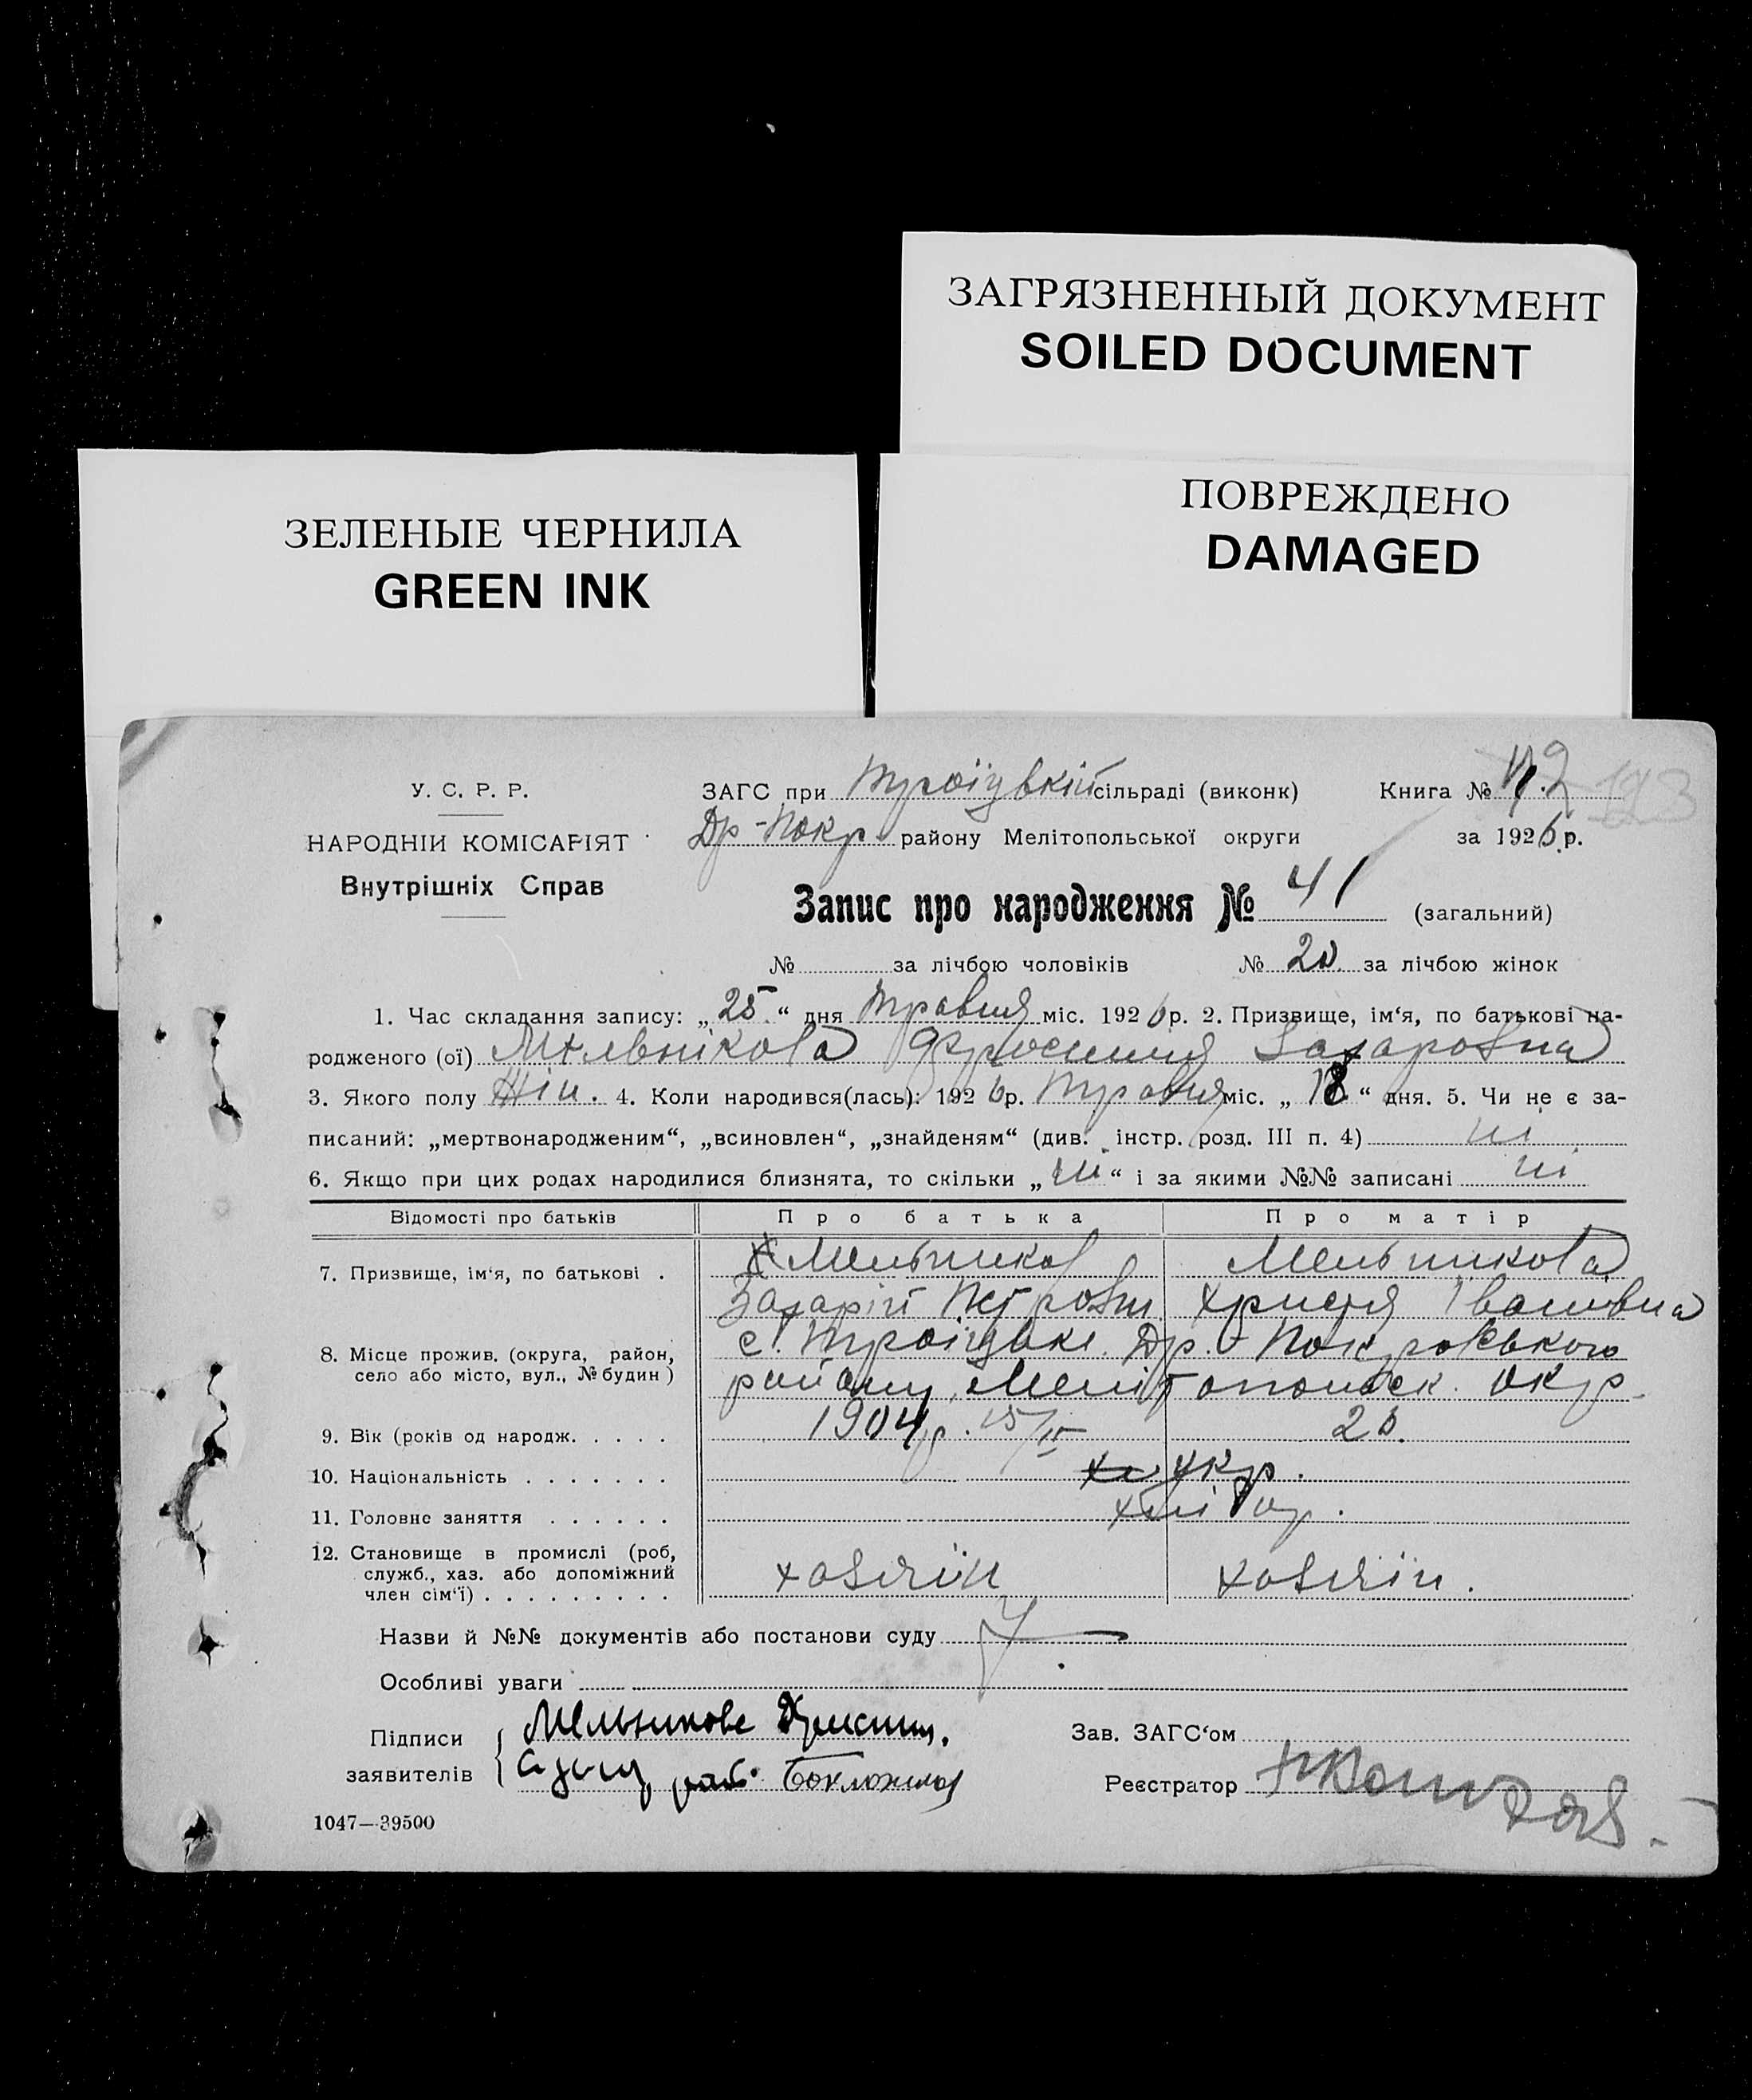 ЗАГРЯЗНЕННЫЙ ДОКУМЕНТ
SOILED DOCUMENT
ЗЕЛЕНЫЕ ЧЕРНИЛА
GREEN INK
ПОВРЕЖДЕНО
DAMAGED
У. С. Р. Р.
НАРОДНІИ КОМІСАРІЯТ
Внутрішніх Справ
ЗАГС при Троїцькій сільраді (виконк) Книга №
Др-Покр. району Мелітопольської округи за 1926 р.
Запис про народження № 41 (загальний)
№ за лічбою чоловіків № 20 за лічбою жінок
1. Час складання запису: „25“ дня Травня міс. 1926 р. 2. Призвище, ім‘я, по батькові на-
родженого (ої) Мельнікова Фросиния Захаровна
3. Якого полу Жін. 4. Коли народився(лась): 1926 р. Травня міс. „18“ дня. 5. Чи не є за-
писаний: „мертвонародженим“, „всиновлен“, „знайденям“ (див. інстр. розд. III п. 4) ні
6. Якщо при цих родах народилися близнята, то скільки „ні“ і за якими №№ записані ні
Відомості про батьків Про батька Про матір
7. Призвище, ім‘я, по батькові . Мельников Мельникова
Захарій Петрович Христя Івановна
8. Місце прожив. (округа, район, село або місто, вул., № будин) с. Троїцьке Др.-Покровського
району, Мелітопольск. окр.
9. Вік (років од народж. . . . . 1904 р. 15/IV
10. Національність . . . . . . . укр.
11. Головне заняття . . . . . . хлібор.
12. Становище в промислі (роб, служб., хаз. або допоміжний член сім‘ї) . . . . . . . . . хозяїн хозяїн.
Назви й №№ документів або постанови суду
Особливі уваги
Підписи заявителів Мельникова
Зав. ЗАГС‘ом
Реєстратор
1047—39500